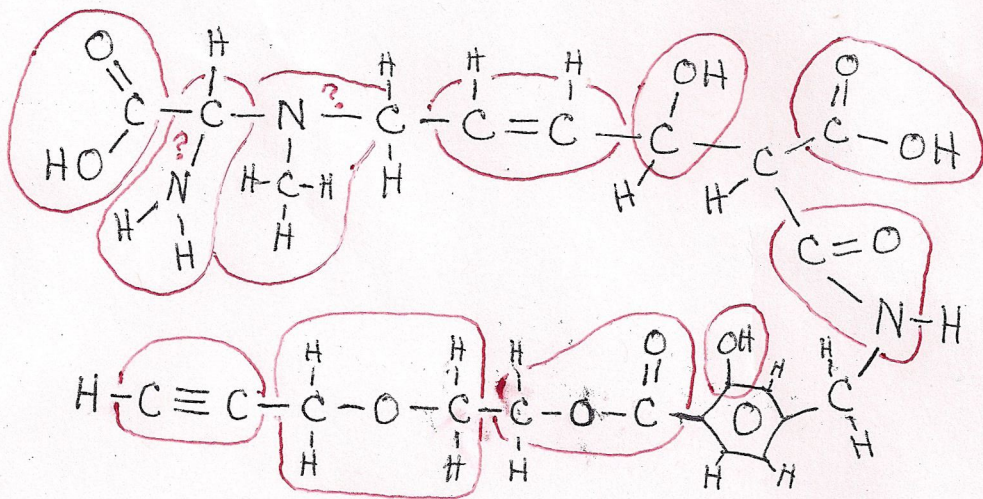 O H
H H H OH O
?
C – C – N – C – C = C – C – C – C – OH
HO ?
N H-C-H H H H
H H H C = O
N - H
H H H O OH H H
H - C ≡ C - C - O - C - C - O - C O C
H H H H H H